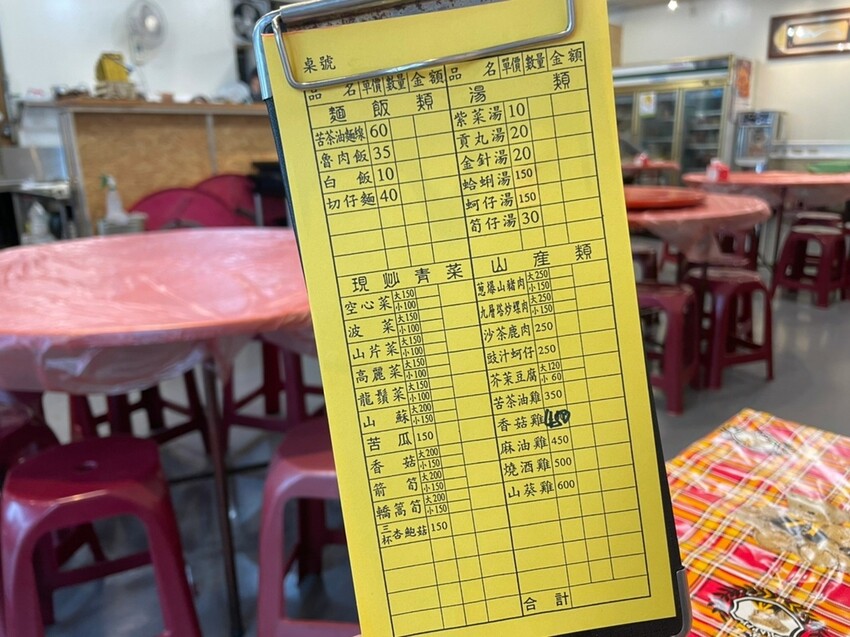 桌號
品名 單價 數量 金額
麵飯類
苦茶油麵線 60
魯肉飯 35
白飯 10
切仔麵 40
品名 單價 數量 金額
湯類
紫菜湯 10
貢丸湯 20
金針湯 20
蛤蜊湯 150
蚵仔湯 150
筍仔湯 30
現炒青菜
空心菜 大150 小100
波菜 大150 小100
山芹菜 大150 小100
高麗菜 大150 小100
龍鬚菜 大150 小100
山蘇 大200 小150
苦瓜 150
香菇 大200 小150
箭筍 大200 小150
轎篙筍 大200 小150
三杯杏鮑菇 150
山產類
蔥爆山豬肉 大250 小150
九層塔炒螺肉 大250 小150
沙茶鹿肉 250
豉汁蚵仔 250
芥茉豆腐 大120 小60
苦茶油雞 350
香菇雞 450
麻油雞 450
燒酒雞 500
山葵雞 600
合計